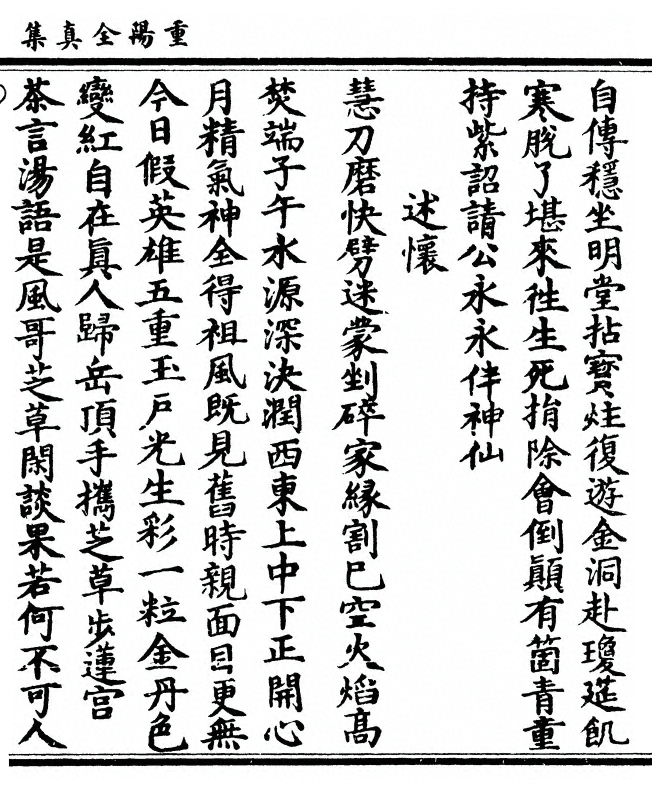 重陽全真集
自傳穩坐明堂拈寶炷復遊金洞赴瓊筵飢
寒脫了堪來徃生死捐除會倒顚有箇青童
持紫詔請公永永伴神仙
述懷
慧刀磨快劈迷蒙剉碎家緣割已空火焰高
焚端子午水源深決潤西東上中下正開心
月精氣神全得祖風既見舊時親面目更無
今日假英雄五重玉戶光生彩一粒金丹色
變紅自在眞人歸岳頂手攜芝草步蓮宮
茶言湯語是風哥芝草閑談果若何不可人